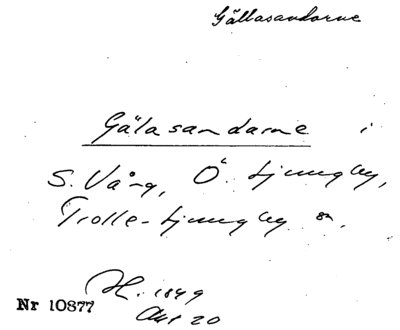 Gällasandarne
Gälasandarne i
S. Vång, Ö. Ljungby,
Trolle-Ljungby sn.
H. 1849
Akt 20
Nr 10877